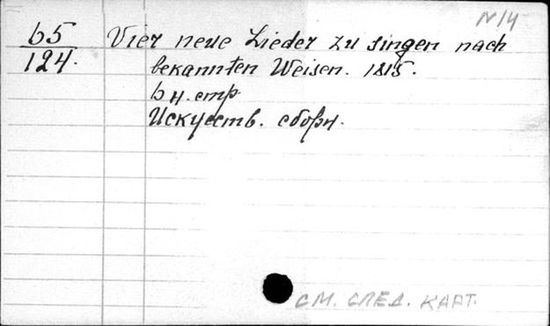 N 14
b5
124.
Vier neue Lieder zu singen nach
bekannten Weisen. 1815.
б н. стр.
Искусств. сборн.
СМ. СЛЕД. КАРТ.